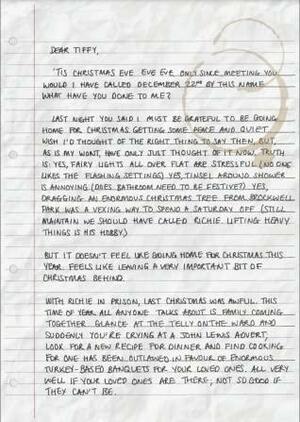 DEAR TIFFY,
'TIS CHRISTMAS EVE EVE EVE. ONLY SINCE MEETING YOU
WOULD I HAVE CALLED DECEMBER 22ND BY THIS NAME.
WHAT HAVE YOU DONE TO ME?
LAST NIGHT YOU SAID I MUST BE GRATEFUL TO BE GOING
HOME FOR CHRISTMAS GETTING SOME PEACE AND QUIET.
WISH I'D THOUGHT OF THE RIGHT THING TO SAY THEN, BUT,
AS IS MY WONT, HAVE ONLY JUST THOUGHT OF IT NOW. TRUTH
IS: YES, FAIRY LIGHTS ALL OVER FLAT ARE STRESSFUL (NO ONE
LIKES THE FLASHING SETTINGS) YES, TINSEL AROUND SHOWER
IS ANNOYING (DOES BATHROOM NEED TO BE FESTIVE?) YES,
DRAGGING AN ENORMOUS CHRISTMAS TREE FROM BROCKWELL
PARK WAS A VEXING WAY TO SPEND A SATURDAY OFF (STILL
MAINTAIN WE SHOULD HAVE CALLED RICHIE. LIFTING HEAVY
THINGS IS HIS HOBBY.)
BUT IT DOESN'T FEEL LIKE GOING HOME FOR CHRISTMAS THIS
YEAR. FEELS LIKE LEAVING A VERY IMPORTANT BIT OF
CHRISTMAS BEHIND.
WITH RICHIE IN PRISON, LAST CHRISTMAS WAS AWFUL. THIS
TIME OF YEAR ALL ANYONE TALKS ABOUT IS FAMILY COMING
TOGETHER. GLANCE AT THE TELLY ON THE WARD AND
SUDDENLY YOU'RE CRYING AT A JOHN LEWIS ADVERT,
LOOK FOR A NEW RECIPE FOR DINNER AND FIND COOKING
FOR ONE HAS BEEN OUTLAWED IN FAVOUR OF ENORMOUS
TURKEY-BASED BANQUETS FOR YOUR LOVED ONES. ALL VERY
WELL IF YOUR LOVED ONES ARE THERE, NOT SO GOOD IF
THEY CAN'T BE.